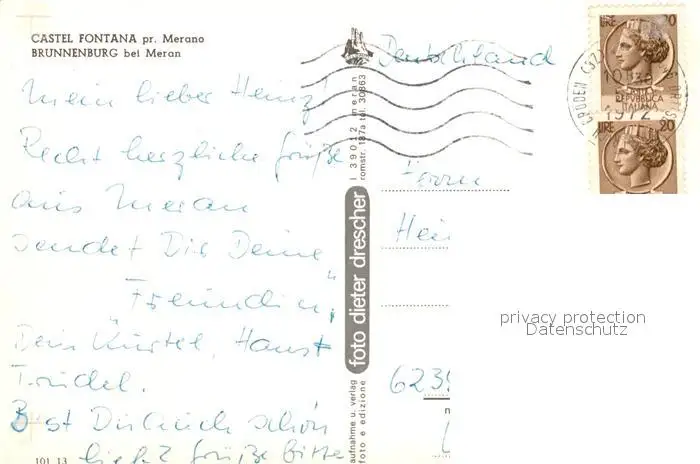 CASTEL FONTANA pr. Merano
BRUNNENBURG bei Meran
Mein lieber Heinz!
Recht herzliche Grüße
aus Meran
sendet Dir Deine
"Freundin"
Dein
Trudel.
Bist Du auch schön
Grüße bitte
101 13
foto dieter drescher
I 39012 meran
romstr. 187a tel. 30863
aufnahme u. verlag
foto e edizione
Deutschland
LIRE 20
REPVBBLICA
ITALIANA
1972
LIRE 20
Herrn
Hei
623
privacy protection
Datenschutz